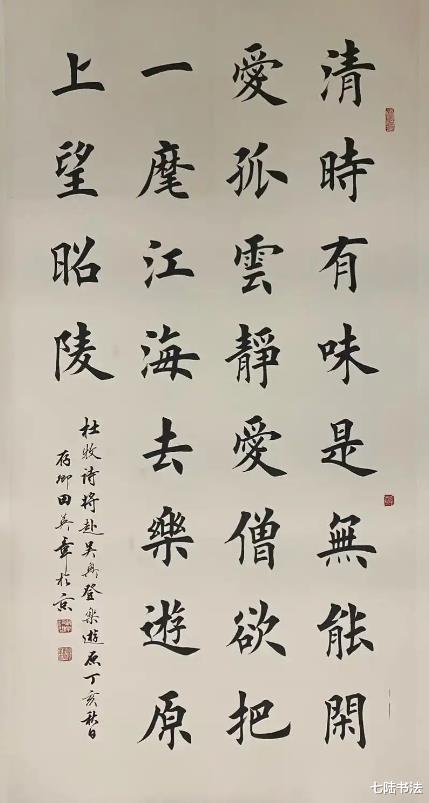 清時有味是無能閑
愛孤雲靜愛僧欲把
一麾江海去樂遊原
上望昭陵
杜牧诗将赴吴興登樂遊原丁亥秋日
存卿田英章於京
七陆书法